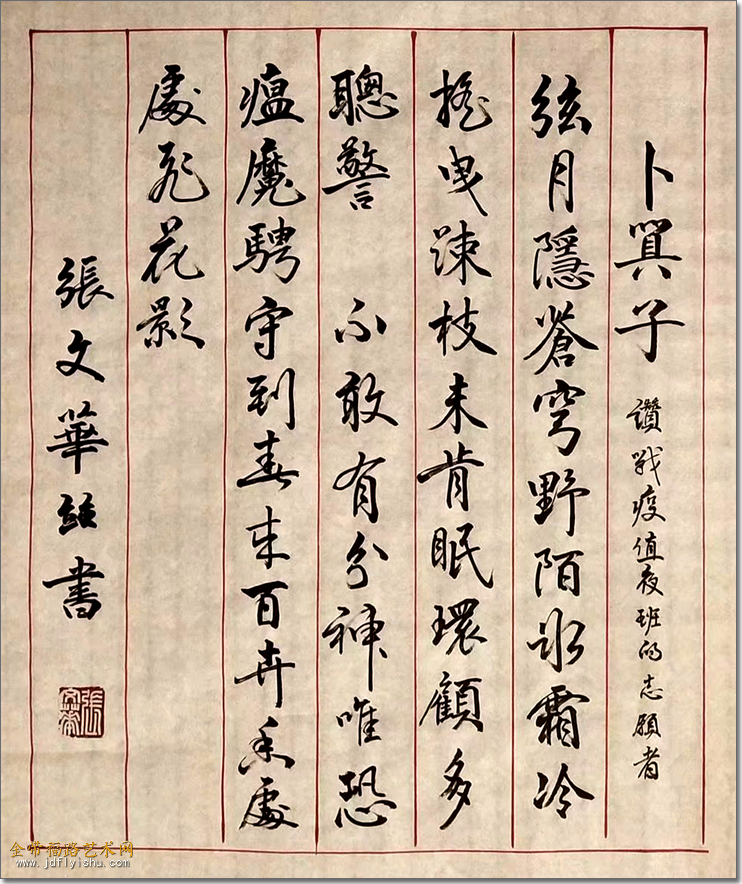 卜算子
讚戰疫值夜班的志願者
弦月隱蒼穹野陌冰霜冷
搖曳疎枝未肯眠環顧多
聰警 不敢有分神唯恐
瘟魔騁守到春來百卉香處
處飛花影
張文華書
張文華
金带福路艺术网
www.jdflyishu.com